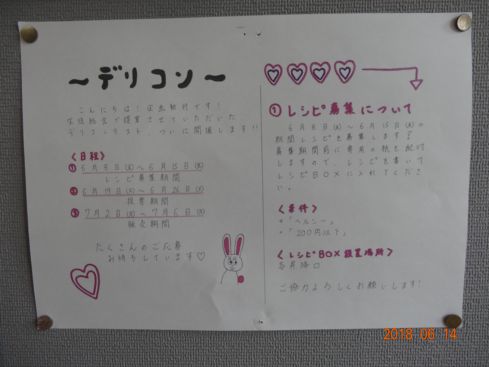 ～デリコン～
こんにちは！生活総合です！
生活総合で提案させていただいた
デリコンテスト、ついに開催します！！
〈日程〉
① 6月8日(火)～6月15日(火)
レシピ募集期間
② 6月19日(火)～6月26日(火)
投票期間
③ 7月2日(火)～7月6日(火)
販売期間
たくさんのご応募
お待ちしています♡
① レシピ募集について
6月8日(火)～6月15日(火)の
期間レシピを募集します？
募集期間前に専用の紙を配布
しますので、レシピを書いて
レシピBOXに入れてくださ
い。
〈条件〉
・"ヘルシー"
・"200円以下"
〈レシピBOX設置場所〉
ご協力よろしくお願いします！
2018 06 14